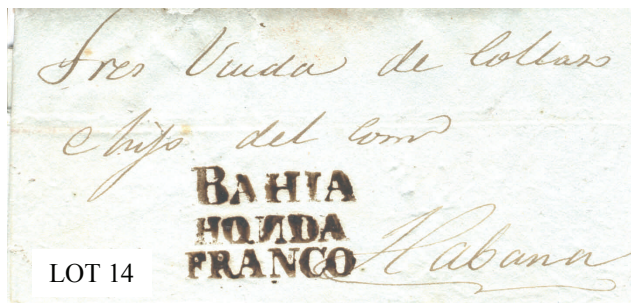 Sres Viuda de Collazo
e hijo del Comº
BAHIA
HONDA
FRANCO
Habana
LOT 14